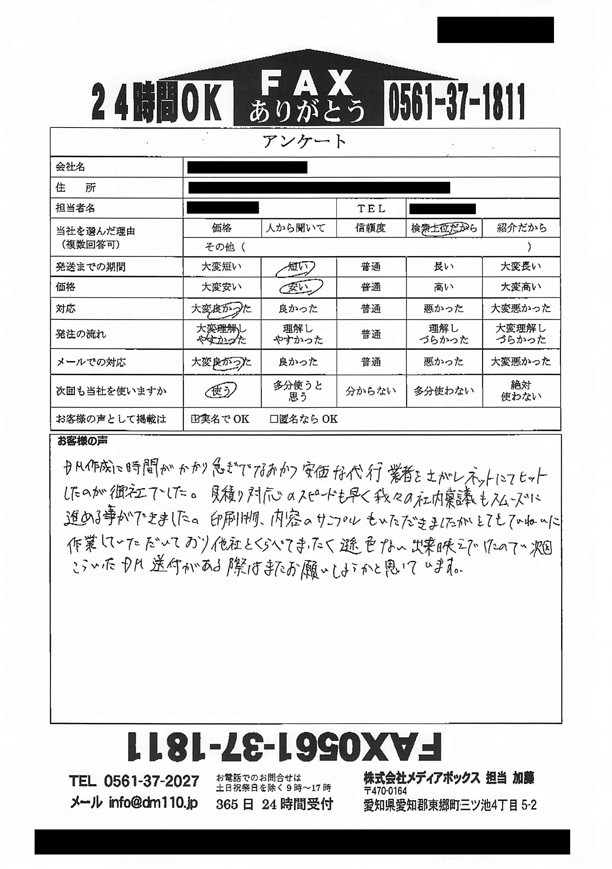 24時間OK
FAX
ありがとう
0561-37-1811
アンケート
会社名
住　所
担当者名 TEL
当社を選んだ理由（複数回答可） 価格 人から聞いて 信頼度 検索上位だから 紹介だから
その他（ ）
発送までの期間 大変短い 短い 普通 長い 大変長い
価格 大変安い 安い 普通 高い 大変高い
対応 大変良かった 良かった 普通 悪かった 大変悪かった
発注の流れ 大変理解しやすかった 理解しやすかった 普通 理解しづらかった 大変理解しづらかった
メールでの対応 大変良かった 良かった 普通 悪かった 大変悪かった
次回も当社を使いますか 使う 多分使うと思う 分からない 多分使わない 絶対使わない
お客様の声として掲載は ☑実名でOK □匿名ならOK
お客様の声
DM作成に時間がかかり急ぎでなおかつ安価な代行業者をさがしネットにてヒット
したのが御社でした。見積り対応のスピードも早く我々の社内稟議もスムーズに
進める事ができました。印刷時、内容のサンプルもいただきましたがとてもていねいに
作業していただいており他社とくらべてまったく遜色ない出来映えでしたので次回
こういたDM送付がある際はまたお願いしようかと思いています。
FAX0561-37-1811
TEL 0561-37-2027
メール info@dm110.jp
お電話でのお問合せは
土日祝祭日を除く9時～17時
365日 24時間受付
株式会社メディアボックス 担当 加藤
〒470-0164
愛知県愛知郡東郷町三ツ池4丁目5-2